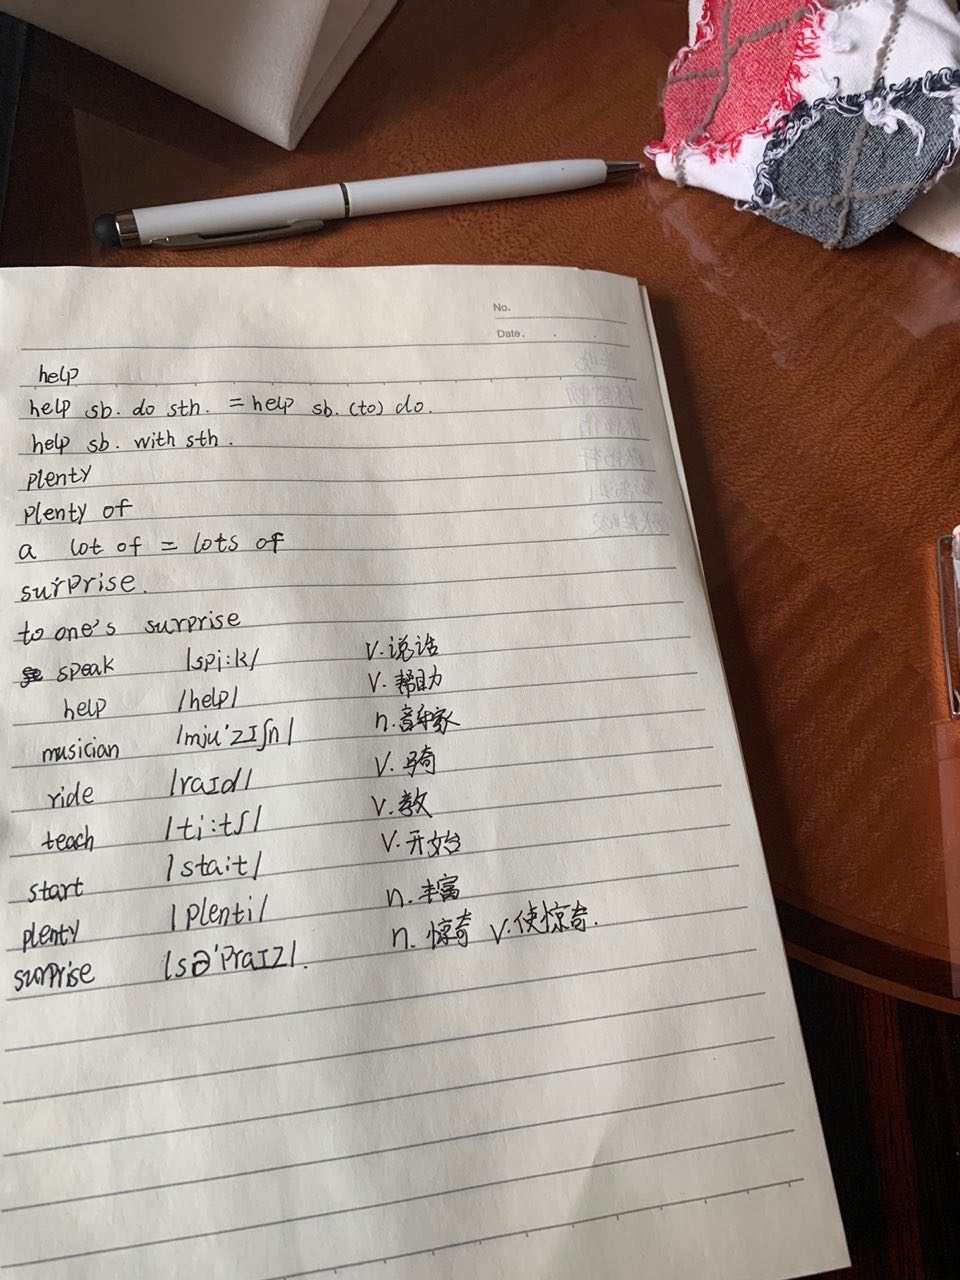 No.
Date.
help
help sb. do sth. = help sb. (to) do.
help sb. with sth.
plenty
plenty of
a lot of = lots of
surprise.
to one's surprise
speak /spi:k/ v. 说话
help /help/ v. 帮助
musician /mju'zɪʃn/ n. 音乐家
ride /raɪd/ v. 骑
teach /ti:tʃ/ v. 教
start /sta:t/ v. 开始
plenty /plenti/ n. 丰富
surprise /sə'praɪz/. n. 惊奇 v. 使惊奇.